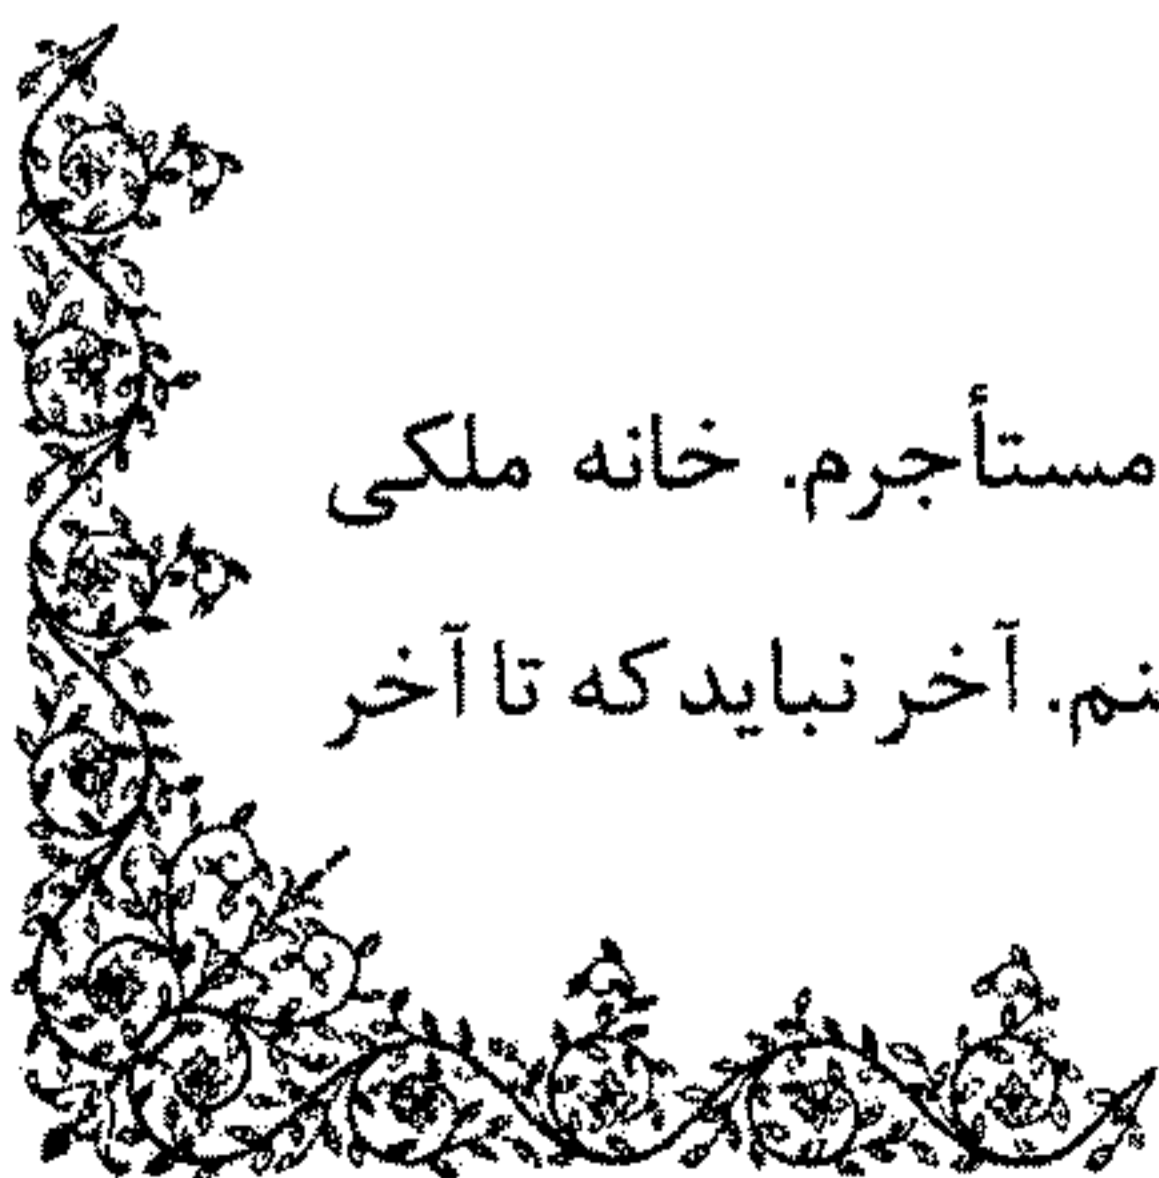 مستأجرم. خانه ملکی
نم. آخر نباید که تا آخر